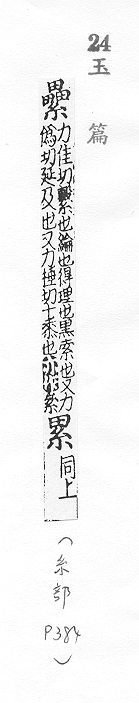 24
玉篇
纍 力佳切繫也綸也得理也黑索也又力
僞切延及也又力捶切十黍也亦作絫
累 同上
(糸部
P384)